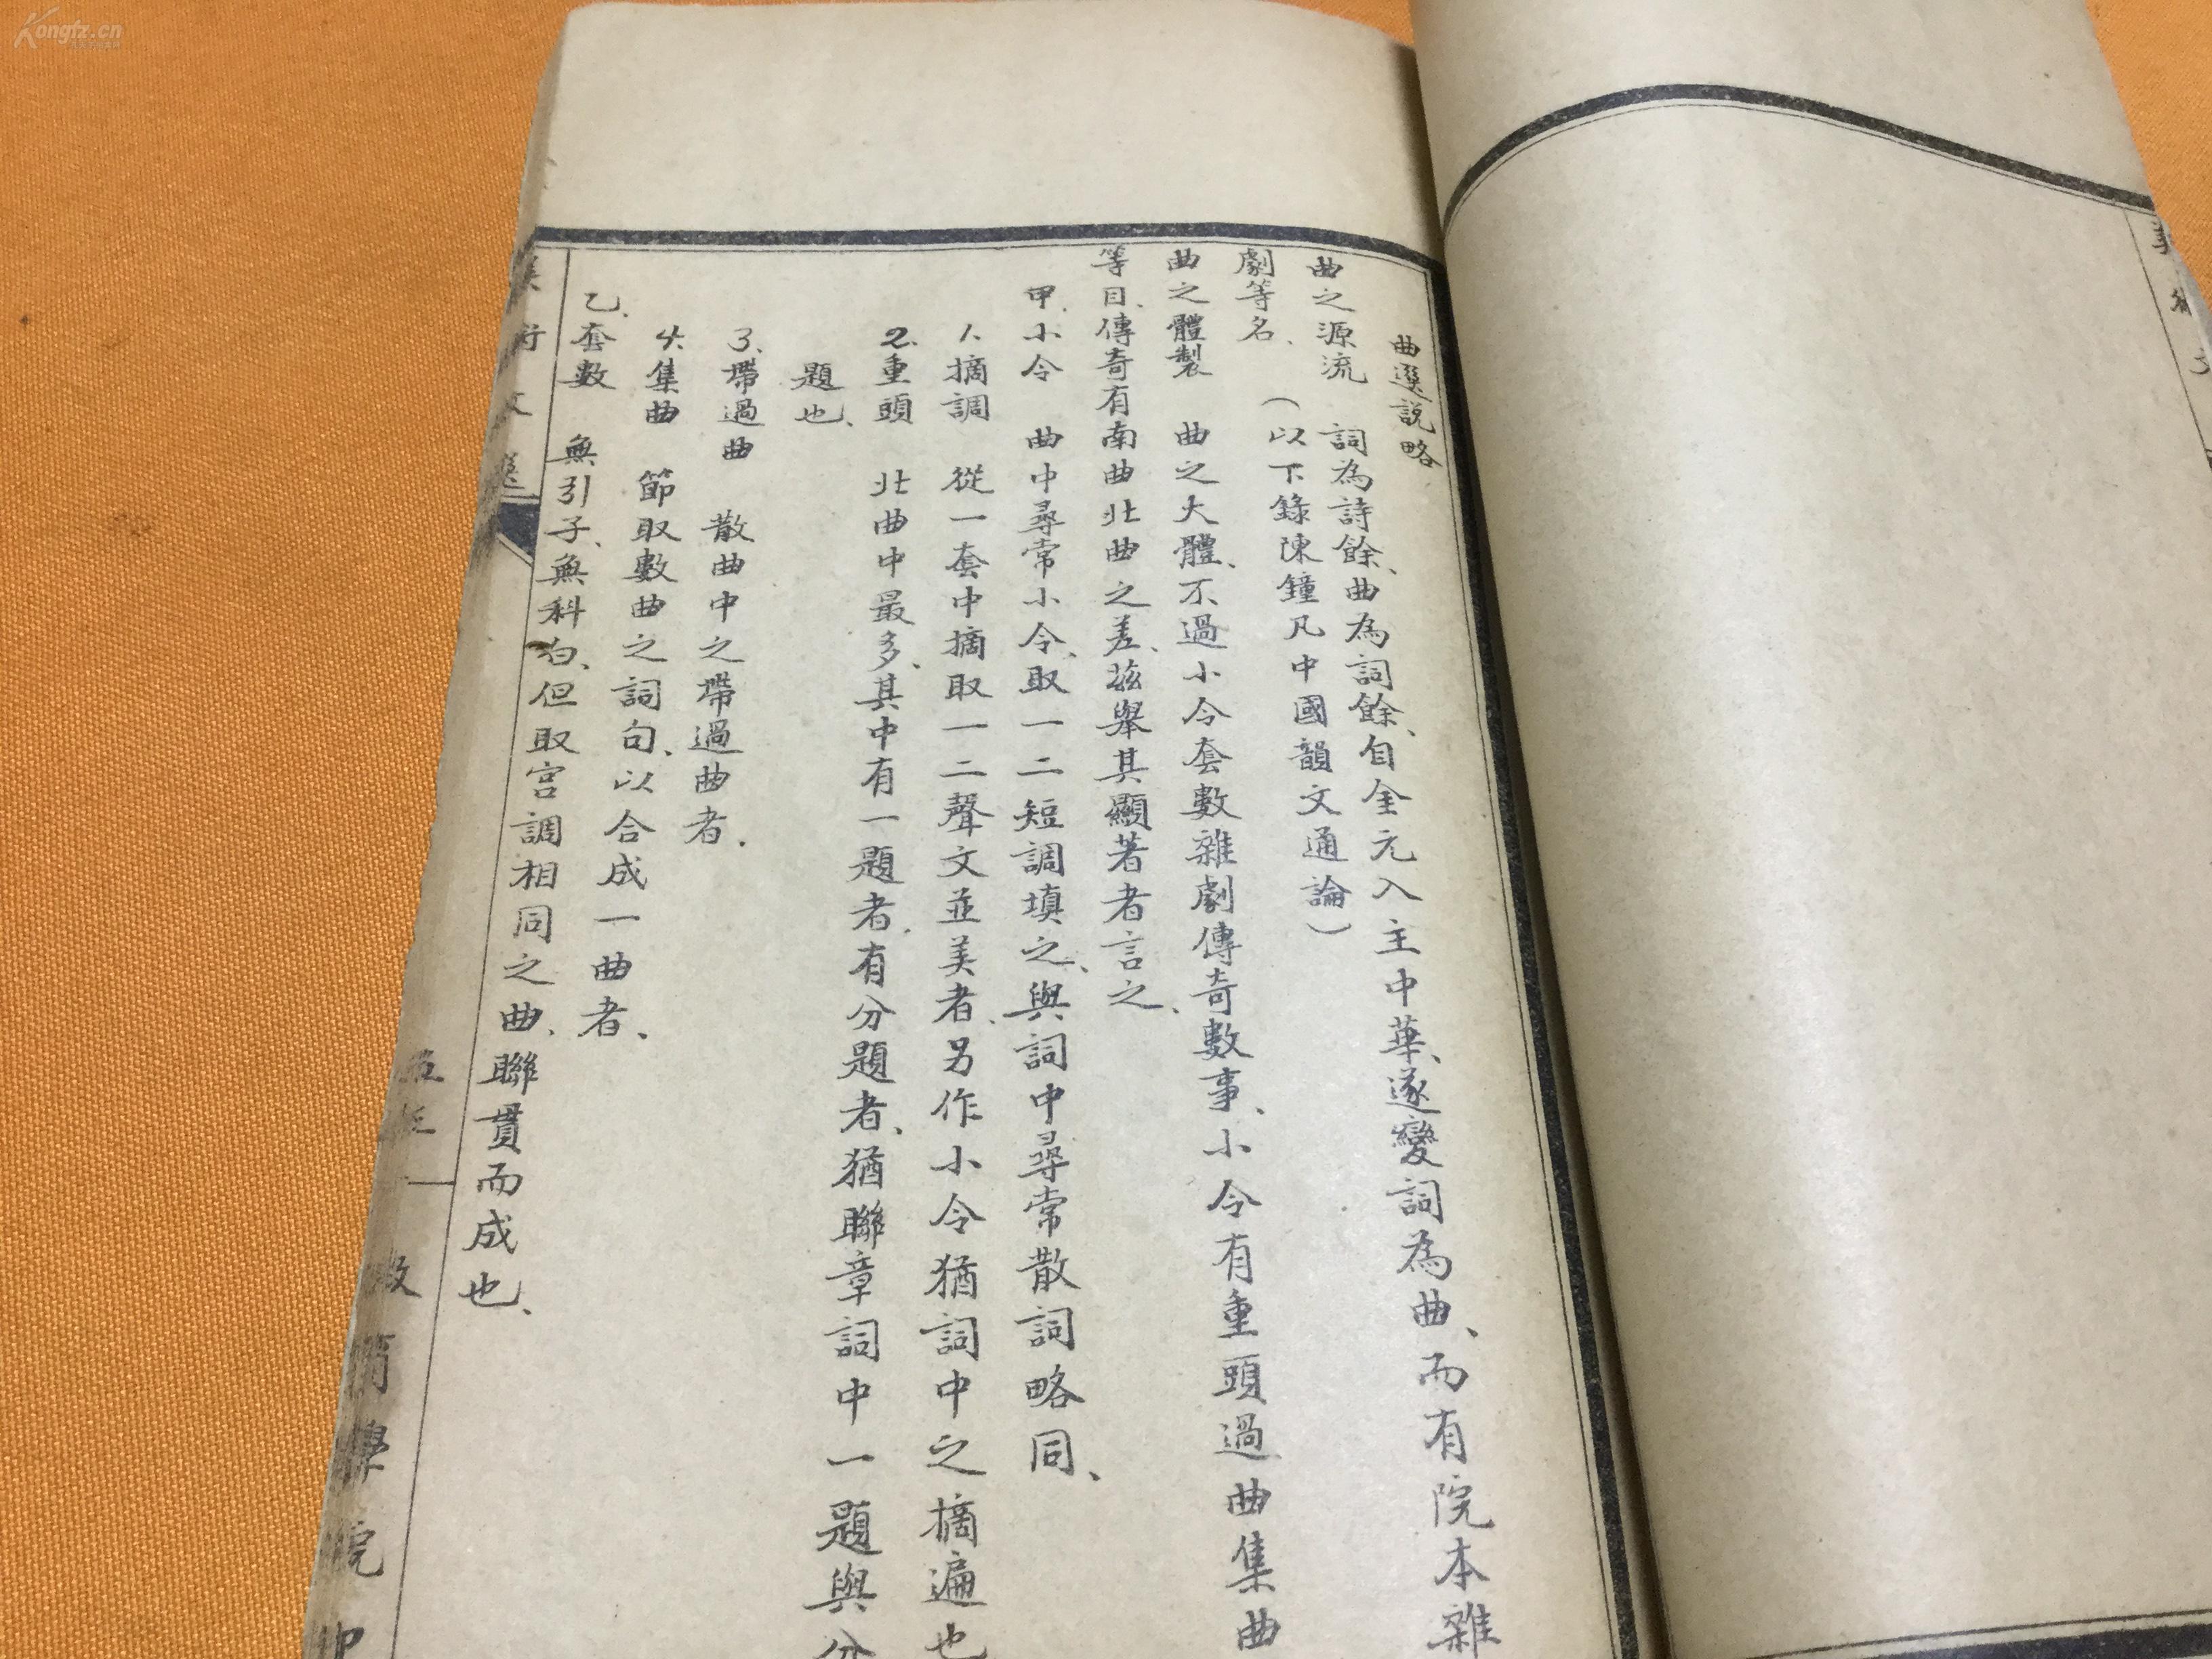 曲選説略
曲之源流　詞為詩餘、曲為詞餘、自金元入主中華、遂變詞為曲、而有院本雜
劇等名、（以下錄陳鐘凡中國韻文通論）
曲之體製　曲之大體、不過小令套數雜劇傳奇數事、小令有重頭過曲集曲
等目、傳奇有南曲北曲之差、茲舉其顯著者言之、
甲、小令　曲中尋常小令、取一二短調填之、與詞中尋常散詞略同、
1、摘調　從一套中摘取一二聲文並美者、另作小令猶詞中之摘遍也
2、重頭　北曲中最多、其中有一題者、有分題者、猶聯章詞中一題與分
題也、
3、帶過曲　散曲中之帶過曲者、
4、集曲　節取數曲之詞句、以合成一曲者、
乙、套數　無引子、無科白、但取宮調相同之曲、聯貫而成也、
文選
學院印
Kongfz.cn